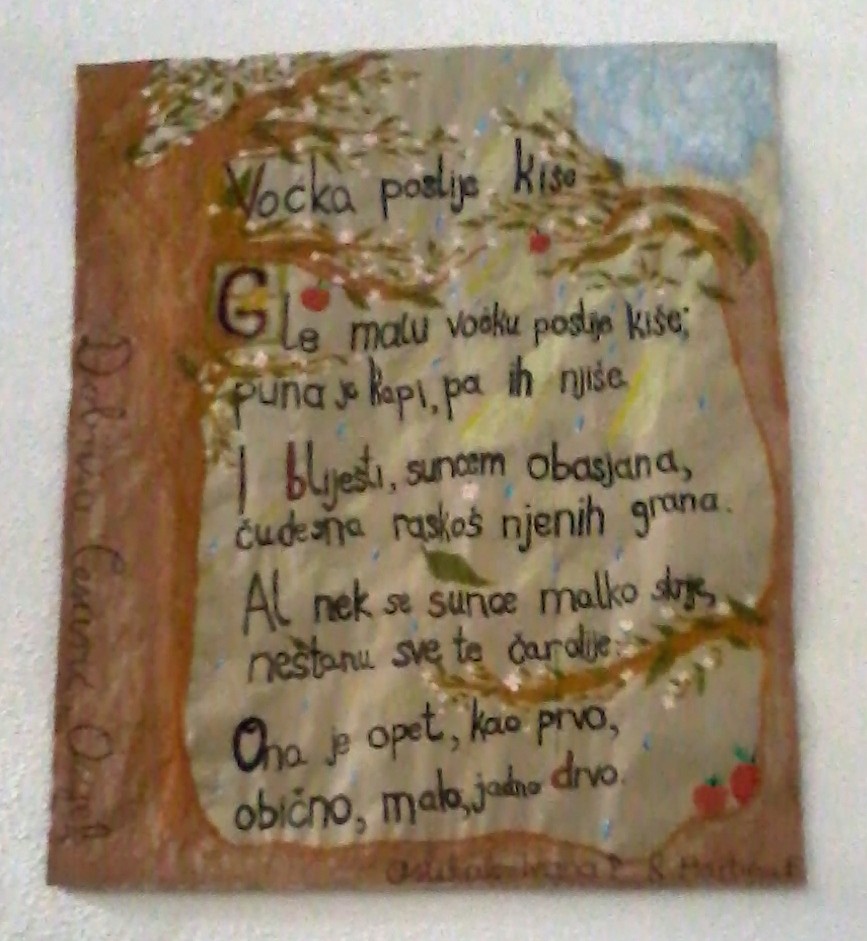 Voćka poslije kiše
Gle malu voćku poslije kiše;
puna je kapi, pa ih njiše.
I bliješti, suncem obasjana,
čudesna raskoš njenih grana.
Al nek se sunce malko skrije,
neštanu sve te čarolije.
Ona je opet, kao prvo,
obično, malo, jadno drvo.